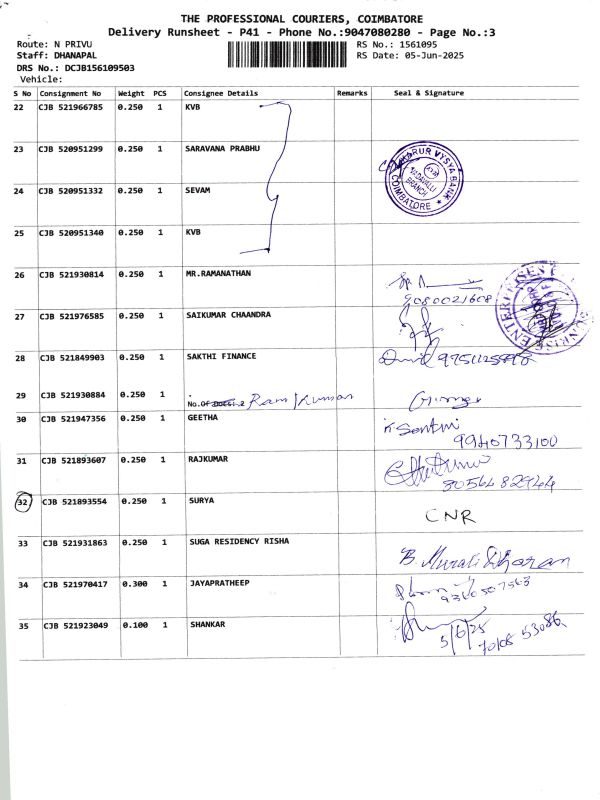 THE PROFESSIONAL COURIERS, COIMBATORE
Delivery Runsheet - P41 - Phone No.:9047080280 - Page No.:3
Route: N PRIVU RS No.: 1561095
Staff: DHANAPAL RS Date: 05-Jun-2025
DRS No.: DCJB156109503
Vehicle:
S No Consignment No Weight PCS Consignee Details Remarks Seal & Signature
22 CJB 521966785 0.250 1 KVB
23 CJB 520951299 0.250 1 SARAVANA PRABHU
KARUR VYSYA BANK
VADAVALLI
BRANCH
COIMBATORE
24 CJB 520951332 0.250 1 SEVAM
25 CJB 520951340 0.250 1 KVB
26 CJB 521930814 0.250 1 MR.RAMANATHAN
9080021608
SUNRISE ENTERPRISES
27 CJB 521976585 0.250 1 SAIKUMAR CHAANDRA
28 CJB 521849903 0.250 1 SAKTHI FINANCE
29 CJB 521930884 0.250 1 .
No.Of Docs: 2 Ram Kumar
30 CJB 521947356 0.250 1 GEETHA
9940733100
31 CJB 521893607 0.250 1 RAJKUMAR
32 CJB 521893554 0.250 1 SURYA CNR
33 CJB 521931863 0.250 1 SUGA RESIDENCY RISHA B. Muralidharan
34 CJB 521970417 0.300 1 JAYAPRATHEEP
9360507563
35 CJB 521923049 0.100 1 SHANKAR
5/6/25